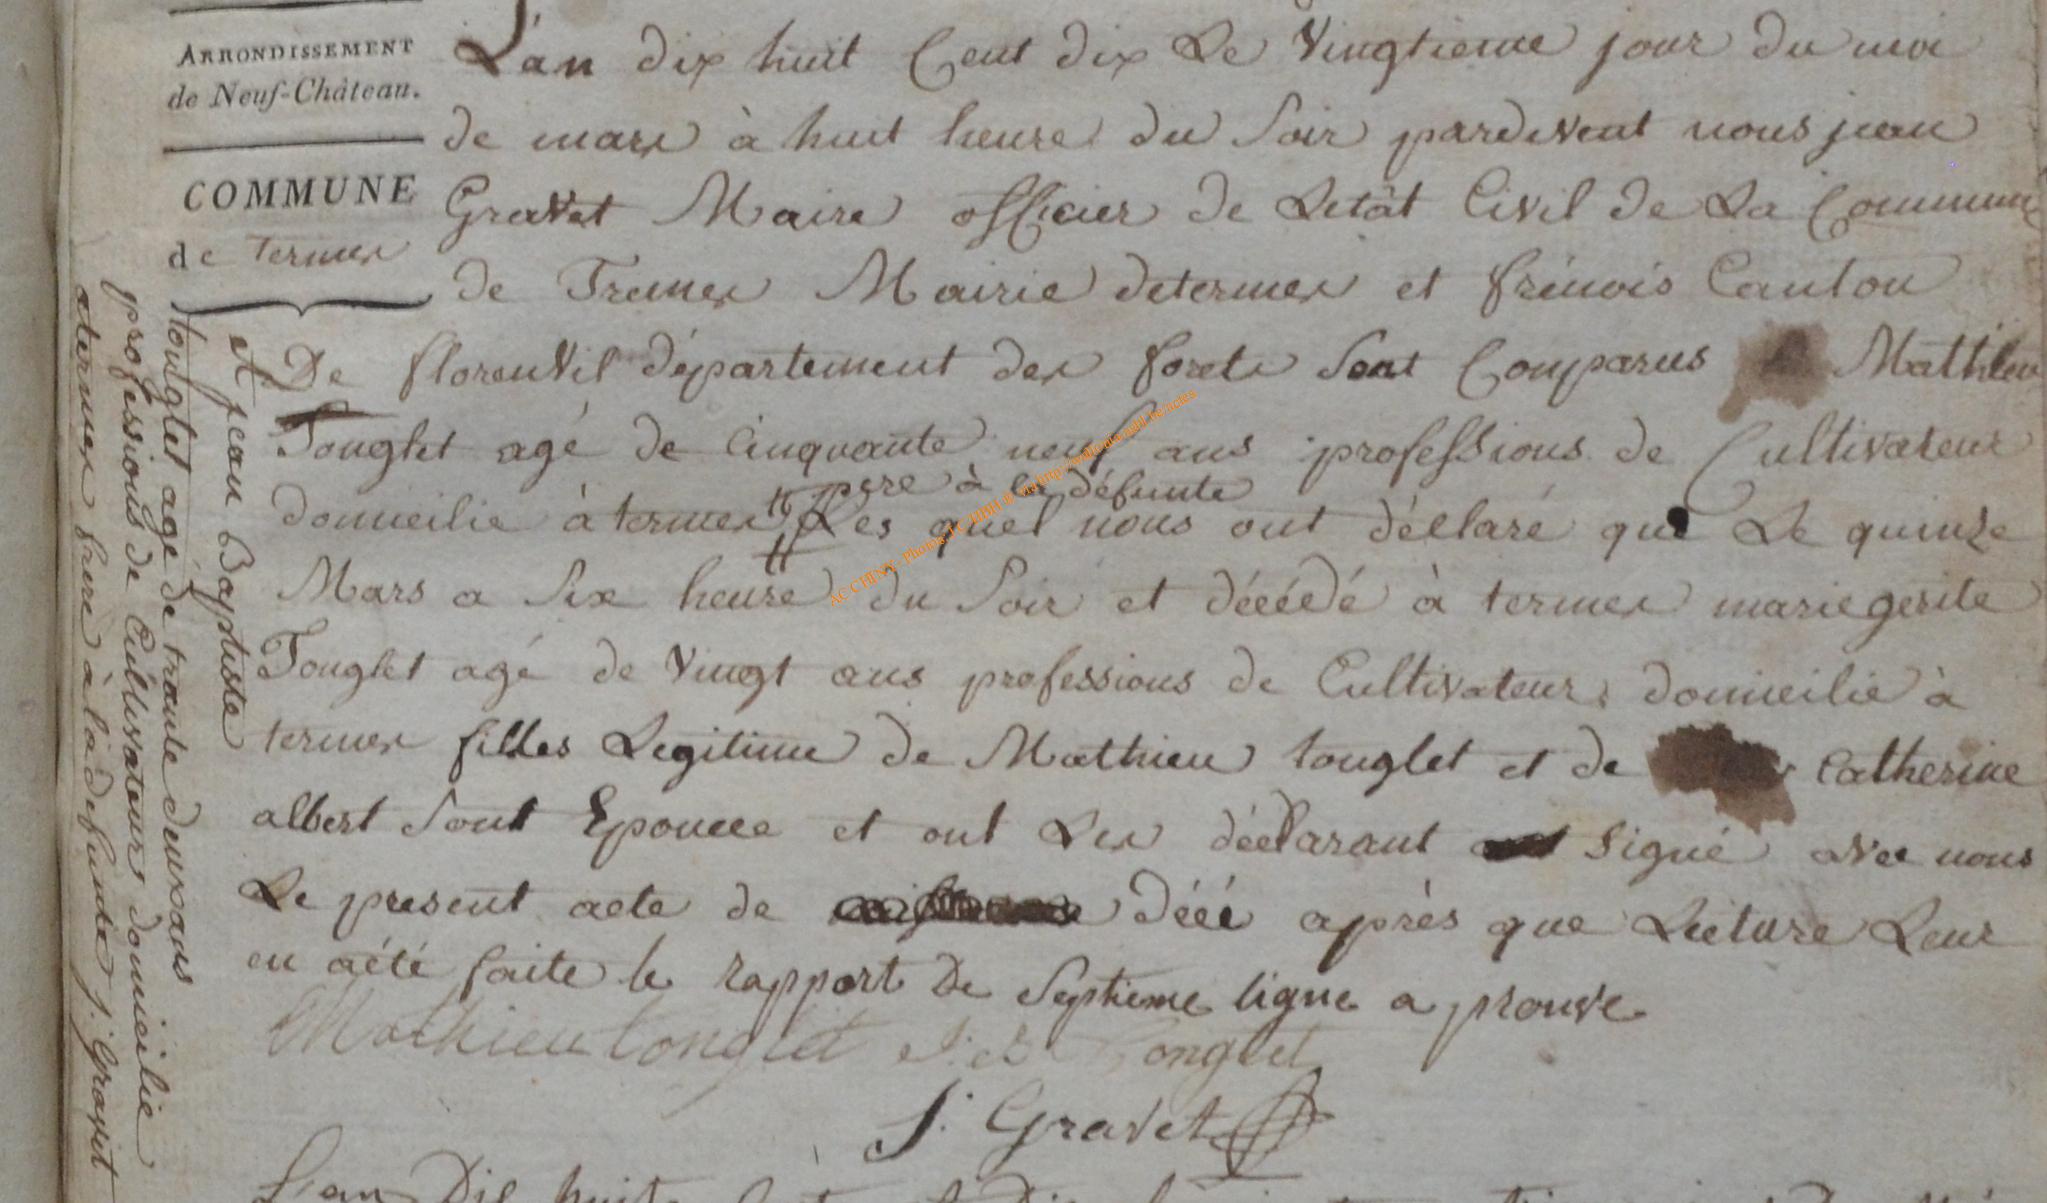 ARRONDISSEMENT
de Neuf-Château.
COMMUNE
de termes
L'an dix huit Cent dix Le Vingtieme jour du moi
de mars à huit heure du Soir pardevent nous jean
Gravet Maire officier de Letât Civil de La Commune
de Tremes Mairie determes et frénois Canton
De florenvil département des foret Sont Comparus Mathieu
Tonglet agé de Cinquante neuf ans professions de Cultivateur
pere à la défunte
domicilie à termes Les quel nous ont déclaré que Le quinze
Mars a Six heure du Soir et décédé à termes marie
Tonglet agé de Vingt ans professions de Cultivateur domicilie à
termes filles Legitime de Mathieu tonglet et de Catherine
albert Sont Epouce et ont Les déclarant Signé avec nous
Le present acte de décé après que Lecture Leur
en aété faite le rapport De Septieme ligne a prouve
Mathieu tonglet J: B Tonglet
J: Gravet
L'an Dix huit
et jean Baptiste
tonglet agé de trante deux ans
professions de Cultivateur domicilie
a termes frere à la defunte J: Gravet
AC CHINY - Photos